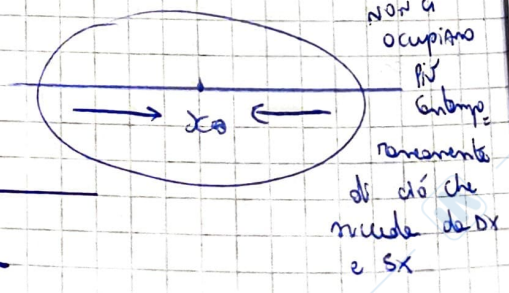 NON CI
OCCUPIAMO
PIÙ
Contempo=
raneamente
di ciò che
succede da DX
e SX
x₀